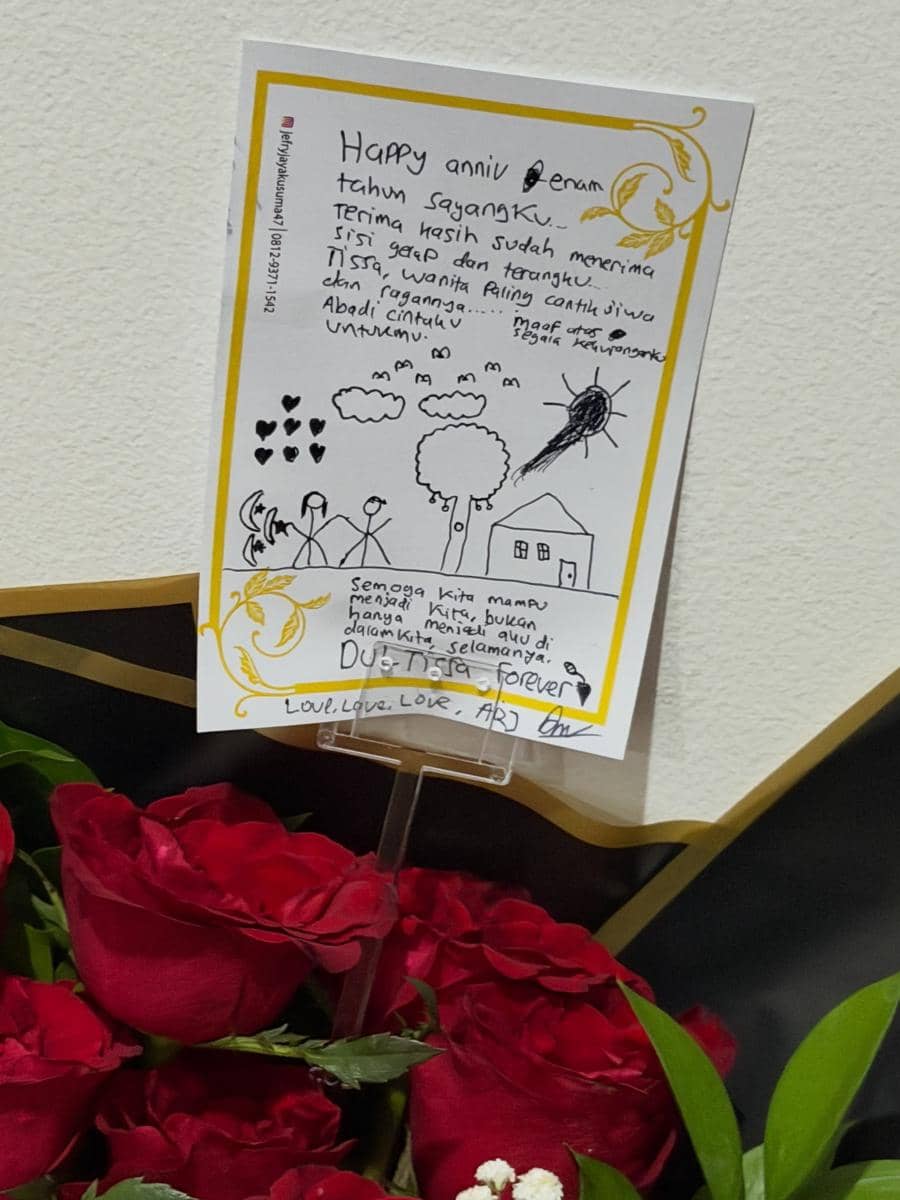 jefryjayakusuma47 | 0812-9371-1542
Happy anniv enam
tahun sayangku...
Terima kasih sudah menerima
sisi gelap dan terangku...
Tissa, wanita paling cantik jiwa
dan ragannya.....
Abadi cintaku
untukmu.
maaf atas
segala kekuranganku
Semoga kita mampu
menjadi kita, bukan
hanya menjadi aku di
dalam kita, selamanya.
Tissa Forever
Love, Love, Love, ARJ